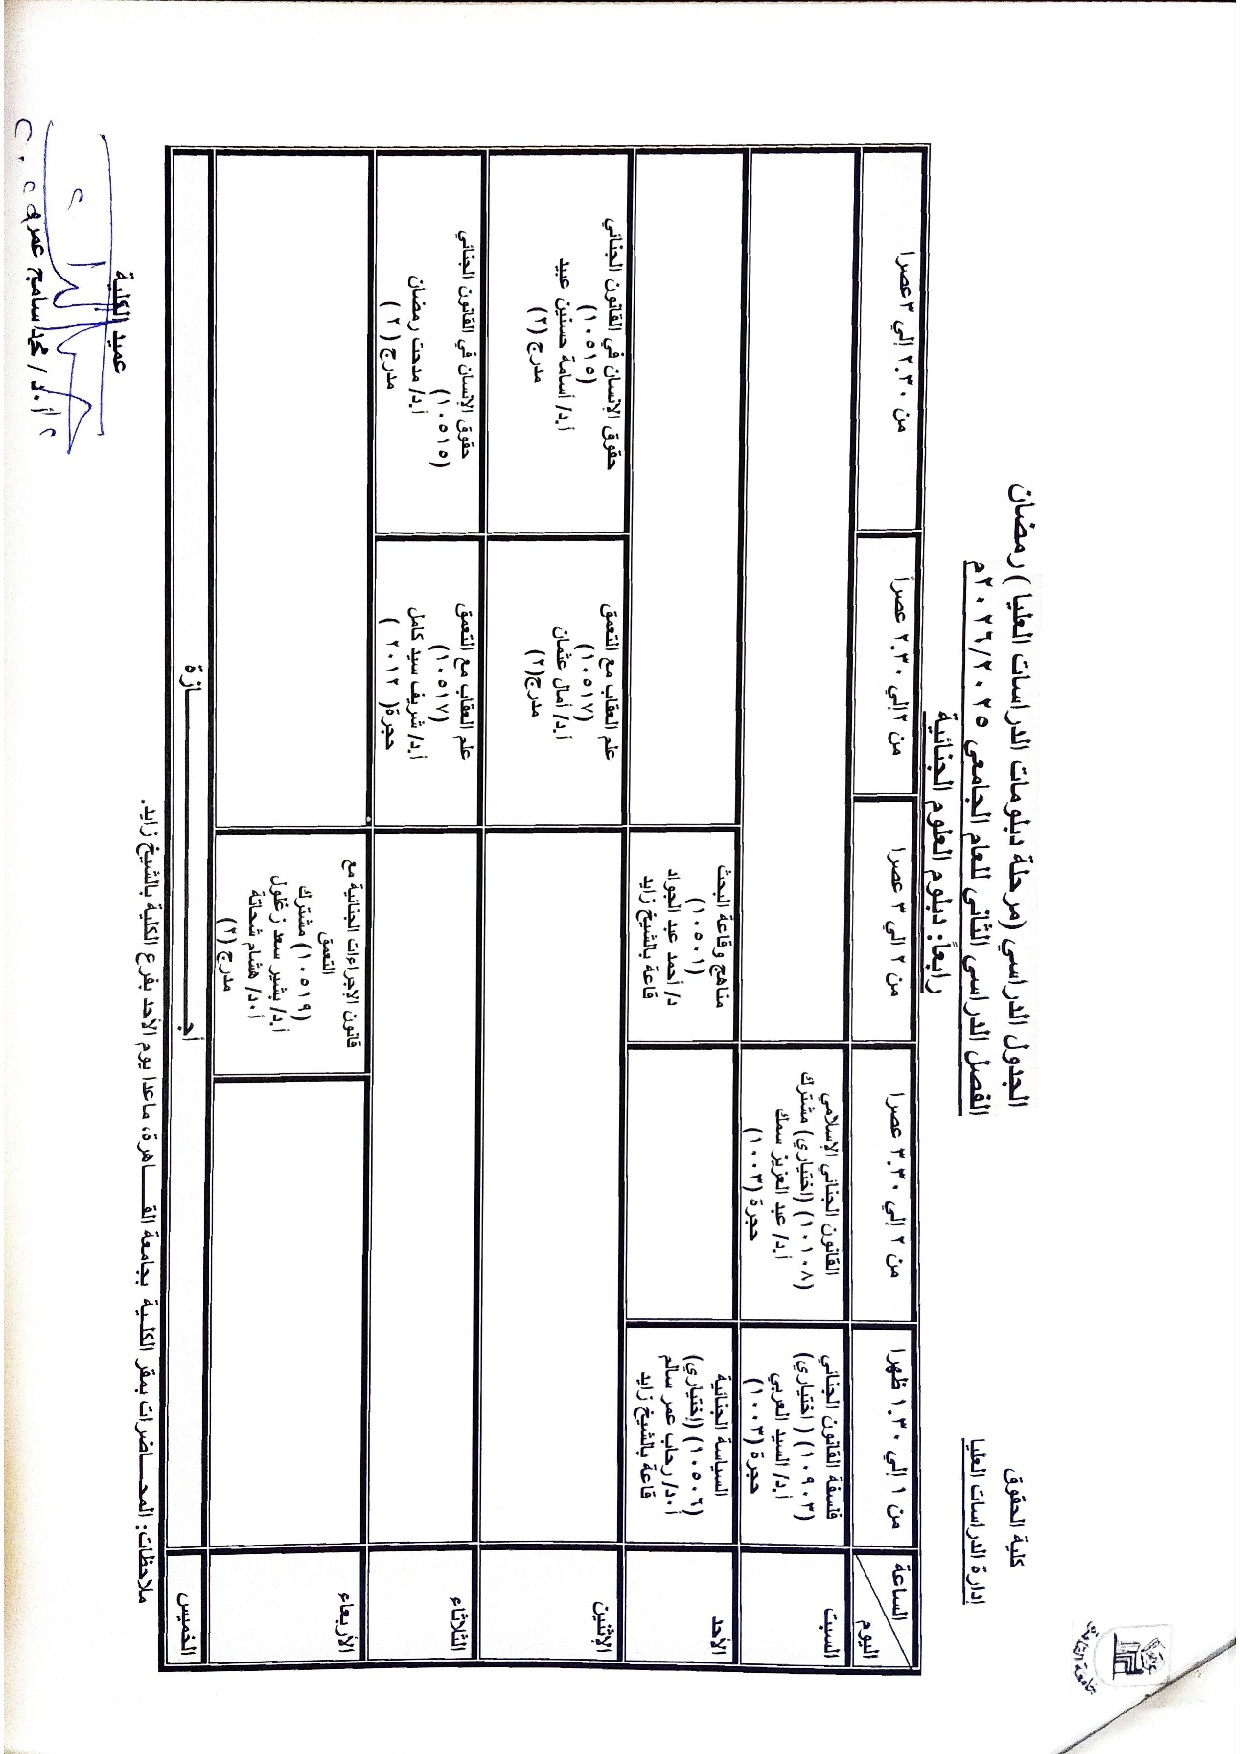 جامعة القاهرة
كلية الحقوق
إدارة الدراسات العليا
الجدول الدراسي (مرحلة دبلومات الدراسات العليا) رمضان
الفصل الدراسي الثاني للعام الجامعي ٢٠٢٦/٢٠٢٥م
رابعاً: دبلوم العلوم الجنائية
الساعة
اليوم
من ١ إلي ١.٣٠ ظهرا
من ٢ إلي ٣.٣٠ عصرا
من ٢ الي ٣ عصرا
من ٢ إلي ٢.٣٠ عصراً
من ٢.٣٠ إلي ٣ عصرا
السبت
فلسفة القانون الجنائي
(١٠٩٠٣) ( اختياري)
أ.د/ السيد العربي
حجرة (١٠٠٣)
القانون الجنائي الإسلامي
(١٠١٠٨) (اختياري) مشترك
أ.د/ عبد العزيز سمك
حجرة (١٠٠٣)
الأحد
السياسة الجنائية
(١٠٥٠٦) (إختياري)
أ.د/ رحاب عمر سالم
قاعة بالشيخ زايد
مناهج وقاعة البحث
(١٠٥٠١)
د/ أحمد عبد الجواد
قاعة بالشيخ زايد
الإثنين
علم العقاب مع التعمق
(١٠٥١٧)
أ.د/ أمال عثمان
مدرج(٢)
حقوق الإنسان في القانون الجنائي
(١٠٥١٥)
أ.د/ أسامة حسنين عبيد
مدرج (٢)
الثلاثاء
علم العقاب مع التعمق
(١٠٥١٧)
أ.د/ شريف سيد كامل
حجرة( ٢٠١٢ )
حقوق الإنسان في القانون الجنائي
(١٠٥١٥)
أ.د/ مدحت رمضان
مدرج ( ٢ )
الأربعاء
قانون الإجراءات الجنائية مع
التعمق
(١٠٥١٩) مشترك
أ.د/ بشير سعد زغلول
أ.د/ هشام شحاتة
مدرج (٢)
الخميس
أجـــــــــــــــــازة
ملاحظات: المحـــاضرات بمقر الكلية بجامعة القـــاهرة، ماعدا يوم الأحد بفرع الكلية بالشيخ زايد.
عميد الكلية
أ.د/ محمد سامح عمرو